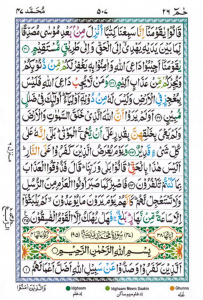 حٰمٓ ٢٦
٥٠٧
مُحَمَّد ٤٧
قَالُوْا يٰقَوْمَنَاۤ اِنَّا سَمِعْنَا كِتٰبًا اُنْزِلَ مِنْۢ بَعْدِ مُوْسٰى مُصَدِّقًا
لِّمَا بَيْنَ يَدَيْهِ يَهْدِيْۤ اِلَى الْحَقِّ وَاِلٰى طَرِيْقٍ مُّسْتَقِيْمٍ
يٰقَوْمَنَاۤ اَجِيْبُوْا دَاعِيَ اللّٰهِ وَاٰمِنُوْا بِهٖ يَغْفِرْ لَكُمْ مِّنْ ذُنُوْبِكُمْ
وَيُجِرْكُمْ مِّنْ عَذَابٍ اَلِيْمٍ وَمَنْ لَّا يُجِبْ دَاعِيَ اللّٰهِ فَلَيْسَ
بِمُعْجِزٍ فِي الْاَرْضِ وَلَيْسَ لَهٗ مِنْ دُوْنِهٖۤ اَوْلِيَآءُ اُولٰٓئِكَ فِيْ
ضَلٰلٍ مُّبِيْنٍ اَوَلَمْ يَرَوْا اَنَّ اللّٰهَ الَّذِيْ خَلَقَ السَّمٰوٰتِ وَالْاَرْضَ
وَلَمْ يَعْيَ بِخَلْقِهِنَّ بِقٰدِرٍ عَلٰۤى اَنْ يُّحْيِۦَ الْمَوْتٰى بَلٰۤى اِنَّهٗ عَلٰى
كُلِّ شَيْءٍ قَدِيْرٌ وَيَوْمَ يُعْرَضُ الَّذِيْنَ كَفَرُوْا عَلَى النَّارِ
اَلَيْسَ هٰذَا بِالْحَقِّ قَالُوْا بَلٰى وَرَبِّنَا قَالَ فَذُوْقُوا الْعَذَابَ
بِمَا كُنْتُمْ تَكْفُرُوْنَ فَاصْبِرْ كَمَا صَبَرَ اُولُوا الْعَزْمِ مِنَ
الرُّسُلِ وَلَا تَسْتَعْجِلْ لَّهُمْ كَاَنَّهُمْ يَوْمَ يَرَوْنَ مَا يُوْعَدُوْنَ لَمْ
يَلْبَثُوْۤا اِلَّا سَاعَةً مِّنْ نَّهَارٍ بَلٰغٌ فَهَلْ يُهْلَكُ اِلَّا الْقَوْمُ الْفٰسِقُوْنَ
بِسْمِ اللّٰهِ الرَّحْمٰنِ الرَّحِيْمِ
اَلَّذِيْنَ كَفَرُوْا وَصَدُّوْا عَنْ سَبِيْلِ اللّٰهِ اَضَلَّ اَعْمَالَهُمْ
وَالَّذِيْنَ اٰمَنُوْا
Idgham
Idgham Meem Saakin
Ghunna